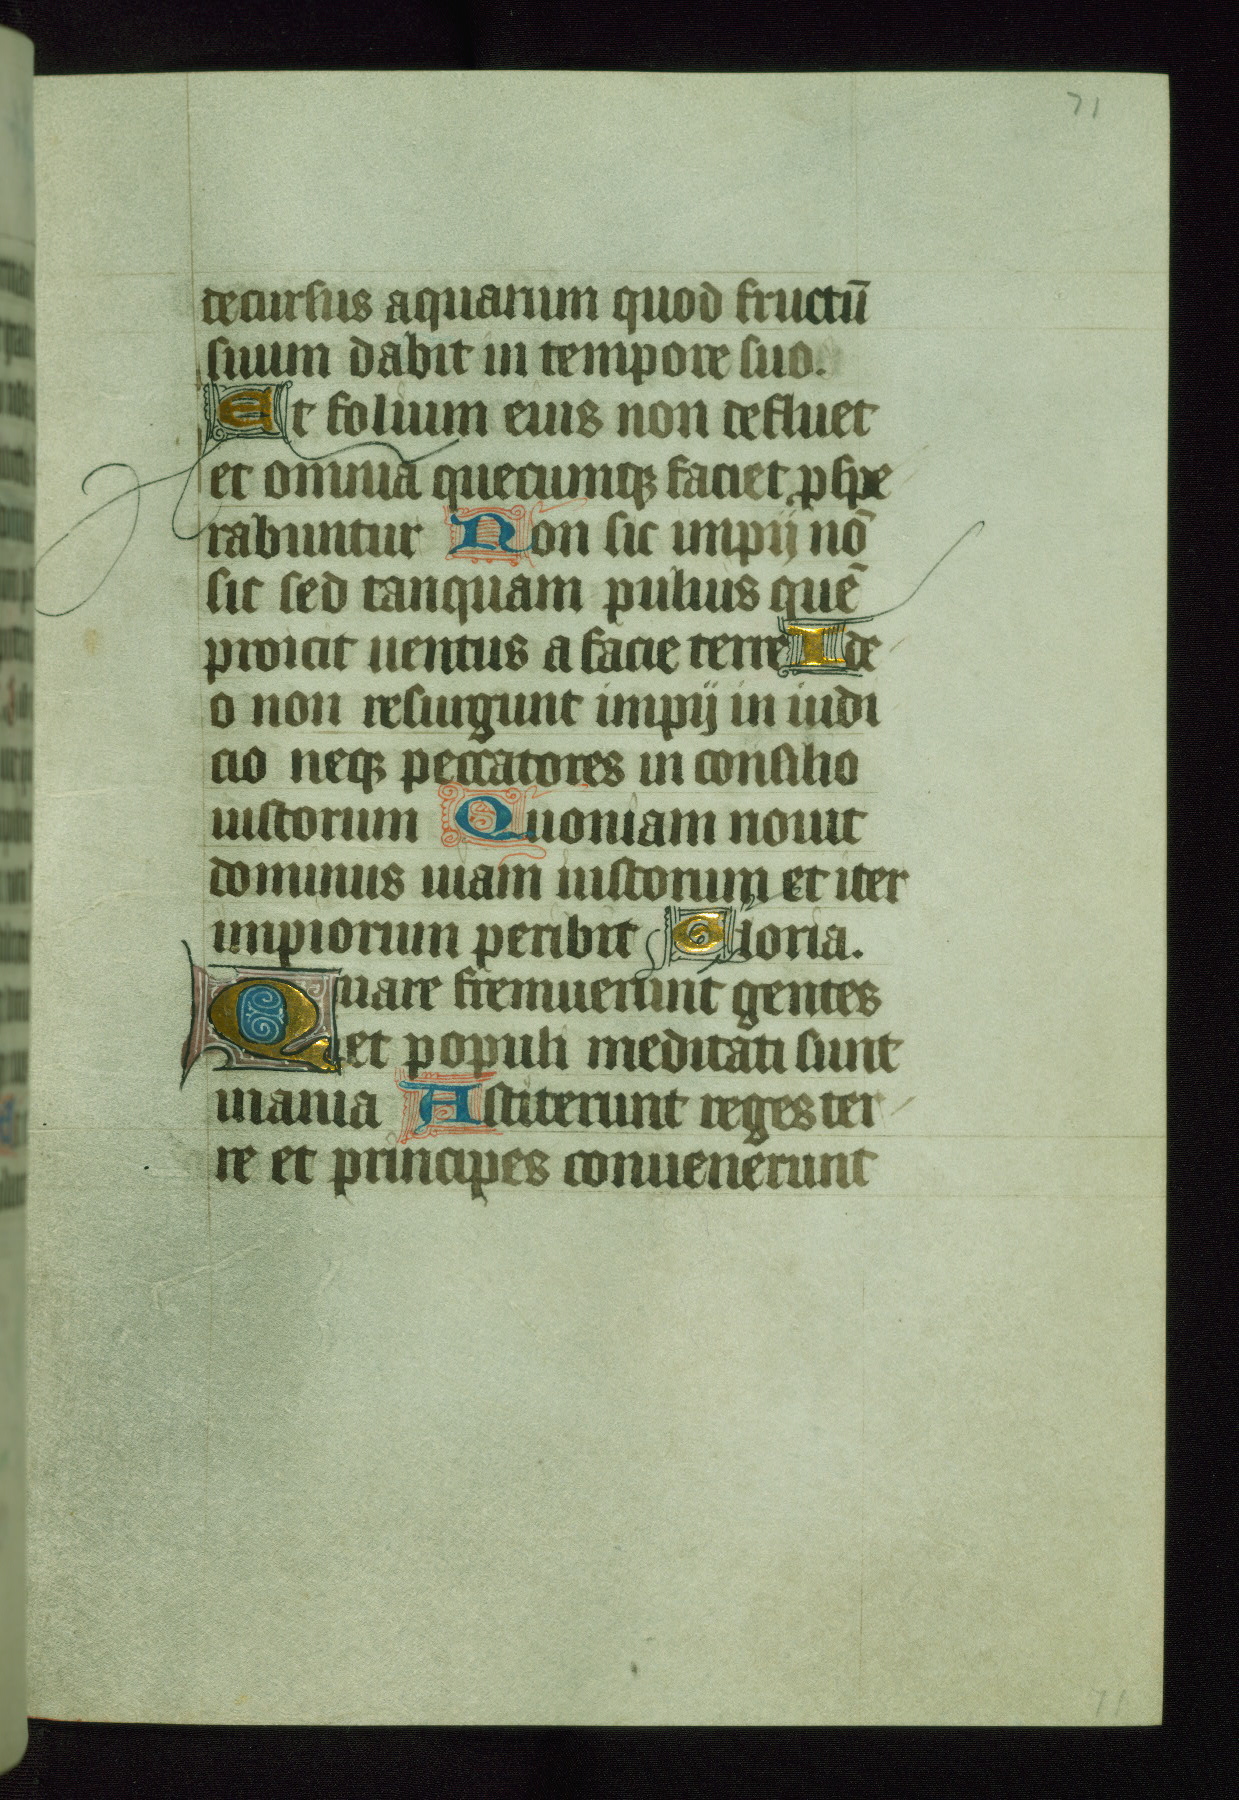 71
decursus aquarum quod fructū
suum dabit in tempore suo.
Et folium eius non defluet
et omnia quecumqꝫ faciet ꝓspe
rabuntur Non sic impij nō
sic sed tanquam puluis quē
proicit uentus a facie terre Ide
o non resurgunt impij in iudi
cio neqꝫ peccatores in consilio
iustorum Quoniam nouit
dominus uiam iustorum et iter
impiorum peribit Gloria.
Quare fremuerunt gentes
et populi meditati sunt
inania Astiterunt reges ter
re et principes conuenerunt
71